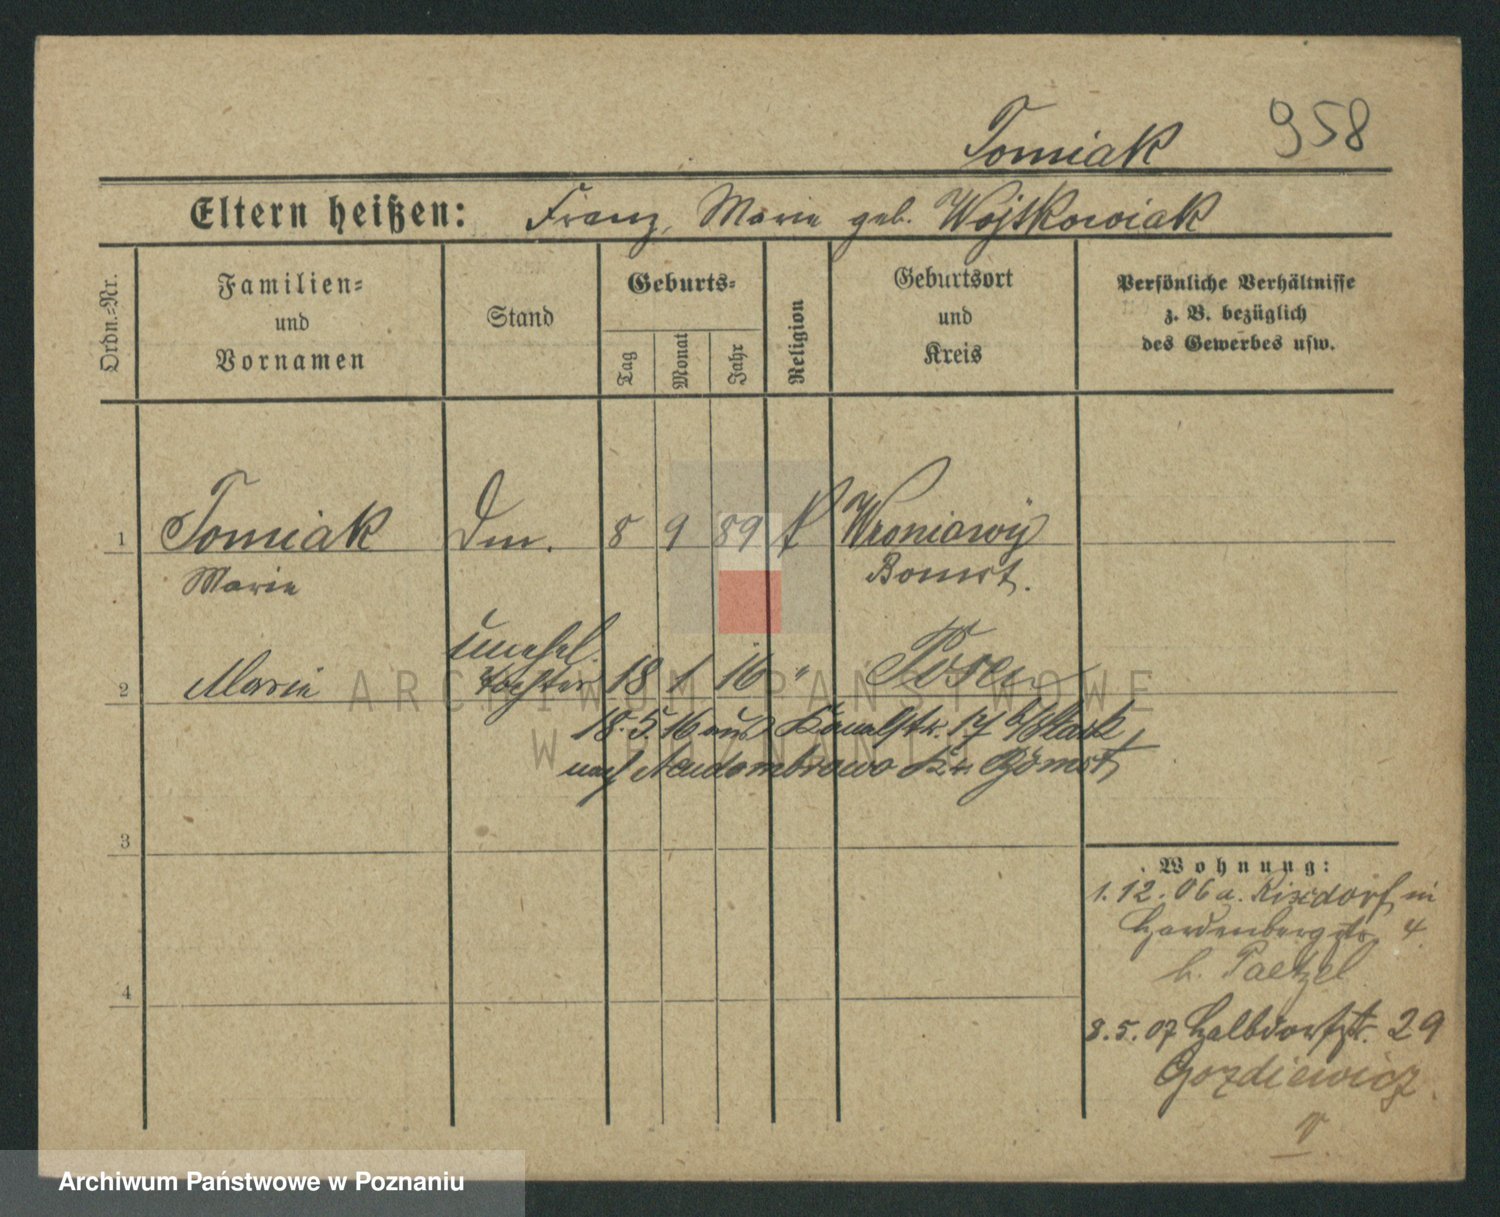 Tomiak 958
Eltern heißen: Franz, Marie geb. Wojtkowiak
Ordn.-Nr.
Familien-
und
Vornamen
Stand
Geburts-
Tag
Monat
Jahr
Religion
Geburtsort
und
Kreis
Persönliche Verhältnisse
z. B. bezüglich
des Gewerbes usw.
1 Tomiak 8 9 89 Wroniawy
Marie Bomst.
unehel.
2 Marie Tochter 18 1 16 " Posen
18.5.16 aus Kanalstr. 17 b/
nach Neudombrowo Kr. Bomst
3
4
Wohnung:
1.12.06 a. Rixdorf in
Hardenbergstr 4
b. Paetzel
8.5.07 Halbdorfstr. 29
Gozdiewicz
ARCHIWUM PAŃSTWOWE
W POZNANIU
Archiwum Państwowe w Poznaniu